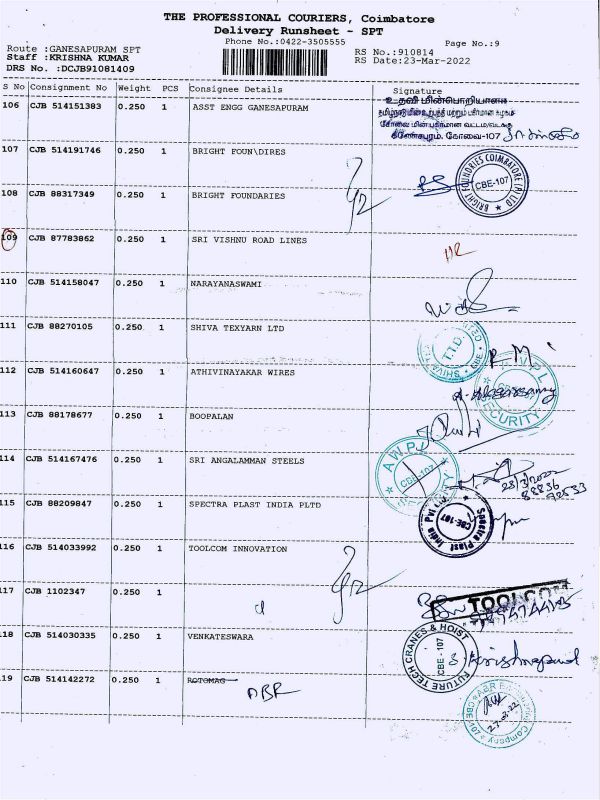 THE PROFESSIONAL COURIERS, Coimbatore
Delivery Runsheet - SPT
Phone No.:0422-3505555
Page No.:9
Route :GANESAPURAM SPT
Staff :KRISHNA KUMAR
DRS No. :DCJB91081409
RS No.:910814
RS Date:23-Mar-2022
S No Consignment No Weight PCS Consignee Details Signature
106 CJB 514151383 0.250 1 ASST ENGG GANESAPURAM
கணேசபுரம், கோவை-107
107 CJB 514191746 0.250 1 BRIGHT FOUN\DIRES
BRIGHT FOUNDRIES COIMBATORE (P) LTD
CBE-107
108 CJB 88317349 0.250 1 BRIGHT FOUNDARIES
109 CJB 87783862 0.250 1 SRI VISHNU ROAD LINES
110 CJB 514158047 0.250 1 NARAYANASWAMI
111 CJB 88270105 0.250 1 SHIVA TEXYARN LTD
T.T.D
112 CJB 514160647 0.250 1 ATHIVINAYAKAR WIRES
SECURITY
113 CJB 88178677 0.250 1 BOOPALAN
114 CJB 514167476 0.250 1 SRI ANGALAMMAN STEELS
AWPL
CBE-107
115 CJB 88209847 0.250 1 SPECTRA PLAST INDIA PLTD
Spectra Plast India Pvt Ltd
CBE-107
116 CJB 514033992 0.250 1 TOOLCOM INNOVATION
117 CJB 1102347 0.250 1
TOOLCOM
118 CJB 514030335 0.250 1 VENKATESWARA
FUTURE TECH CRANES & HOIST
CBE-107
119 CJB 514142272 0.250 1 ROTOMAG
ABR